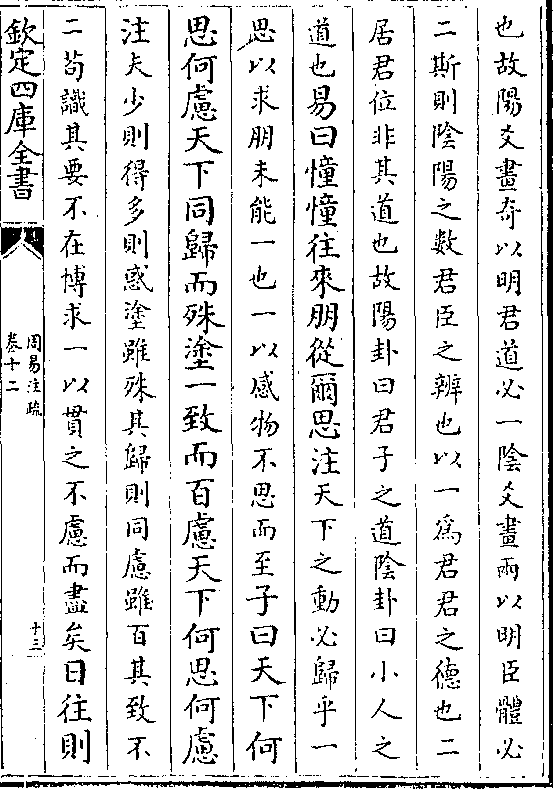 也故陽爻畫奇以明君道必一陰爻畫兩以明臣體必
二斯則陰陽之數君臣之辨也以一為君君之德也二
居君位非其道也故陽卦曰君子之道陰卦曰小人之
道也易曰憧憧往來朋從爾思注天下之動必歸乎一
思以求朋未能一也一以感物不思而至子曰天下何
思何慮天下同歸而殊塗一致而百慮天下何思何慮
注夫少則得多則惑塗雖殊其歸則同慮雖百其致不
二苟識其要不在博求一以貫之不慮而盡矣日往則
欽定四庫全書
周易注疏
卷十二
十三